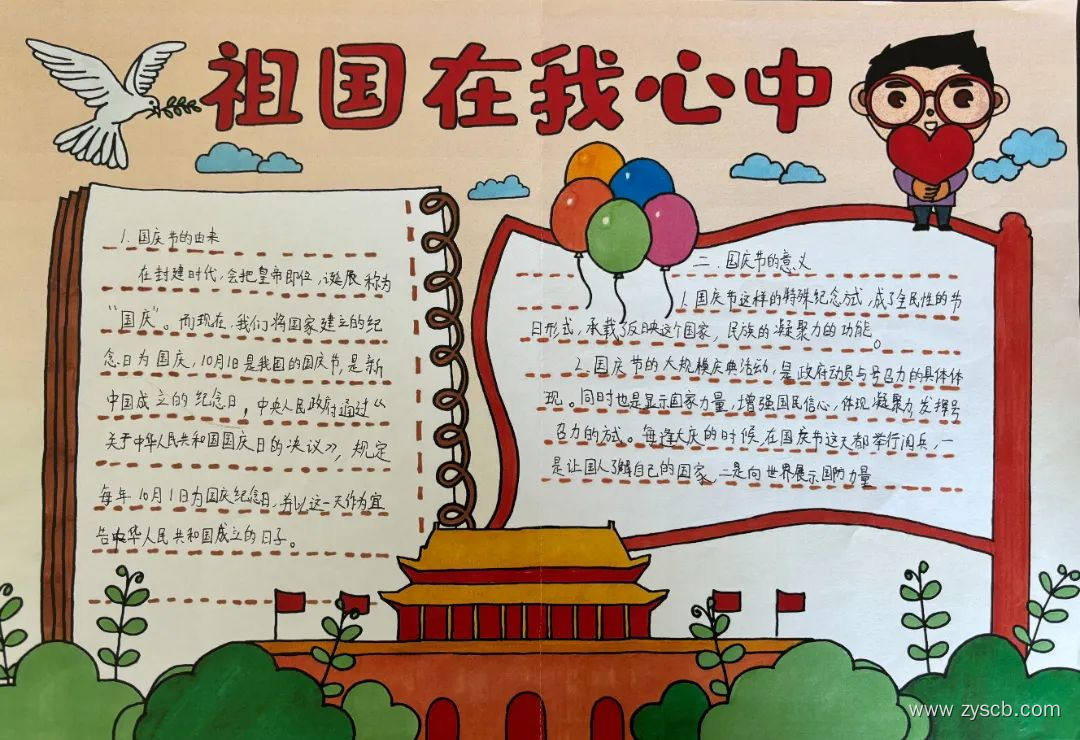 祖国在我心中
1. 国庆节的由来
在封建时代,会把皇帝即位,诞辰称为
“国庆”。而现在,我们将国家建立的纪
念日为国庆,10月1日是我国的国庆节,是新
中国成立的纪念日,中央人民政府通过《
关于中华人民共和国国庆日的决议》,规定
每年10月1日为国庆纪念日,并以这一天作为宣
告中华人民共和国成立的日子。
二.国庆节的意义
1.国庆节这样的特殊纪念方式,成了全民性的节
日形式,承载了反映这个国家,民族的凝聚力的功能。
2.国庆节的大规模庆典活动,是政府动员与号召力的具体体
现。同时也是显示国家力量,增强国民信心,体现凝聚力,发挥号
召力的方式。每逢大庆的时候,在国庆节这天都举行阅兵,一
是让国人了解自己的国家,二是向世界展示国防力量
www.zyscb.com